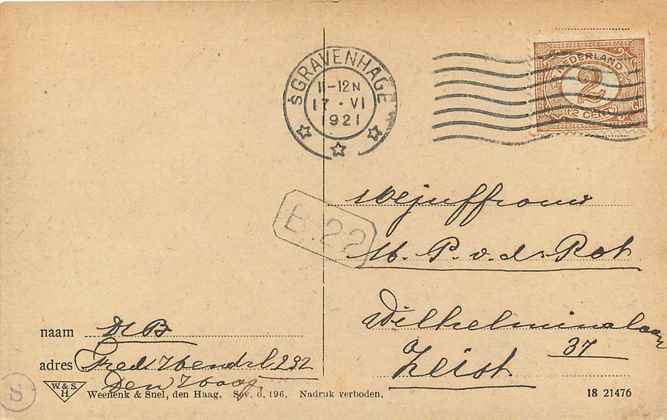 'SGRAVENHAGE
11-12N
17·VI
1921
NEDERLAND
2
½ CENT
B.22
Mejuffrouw
M. P. v. d. Rot
Wilhelminalaan
37
Zeist
naam
adres Fred. Hendr.l. 292
Den Haag
W.&S. H
Weenenk & Snel, den Haag. Sev. d, 196. Nadruk verboden.
18 21476
S